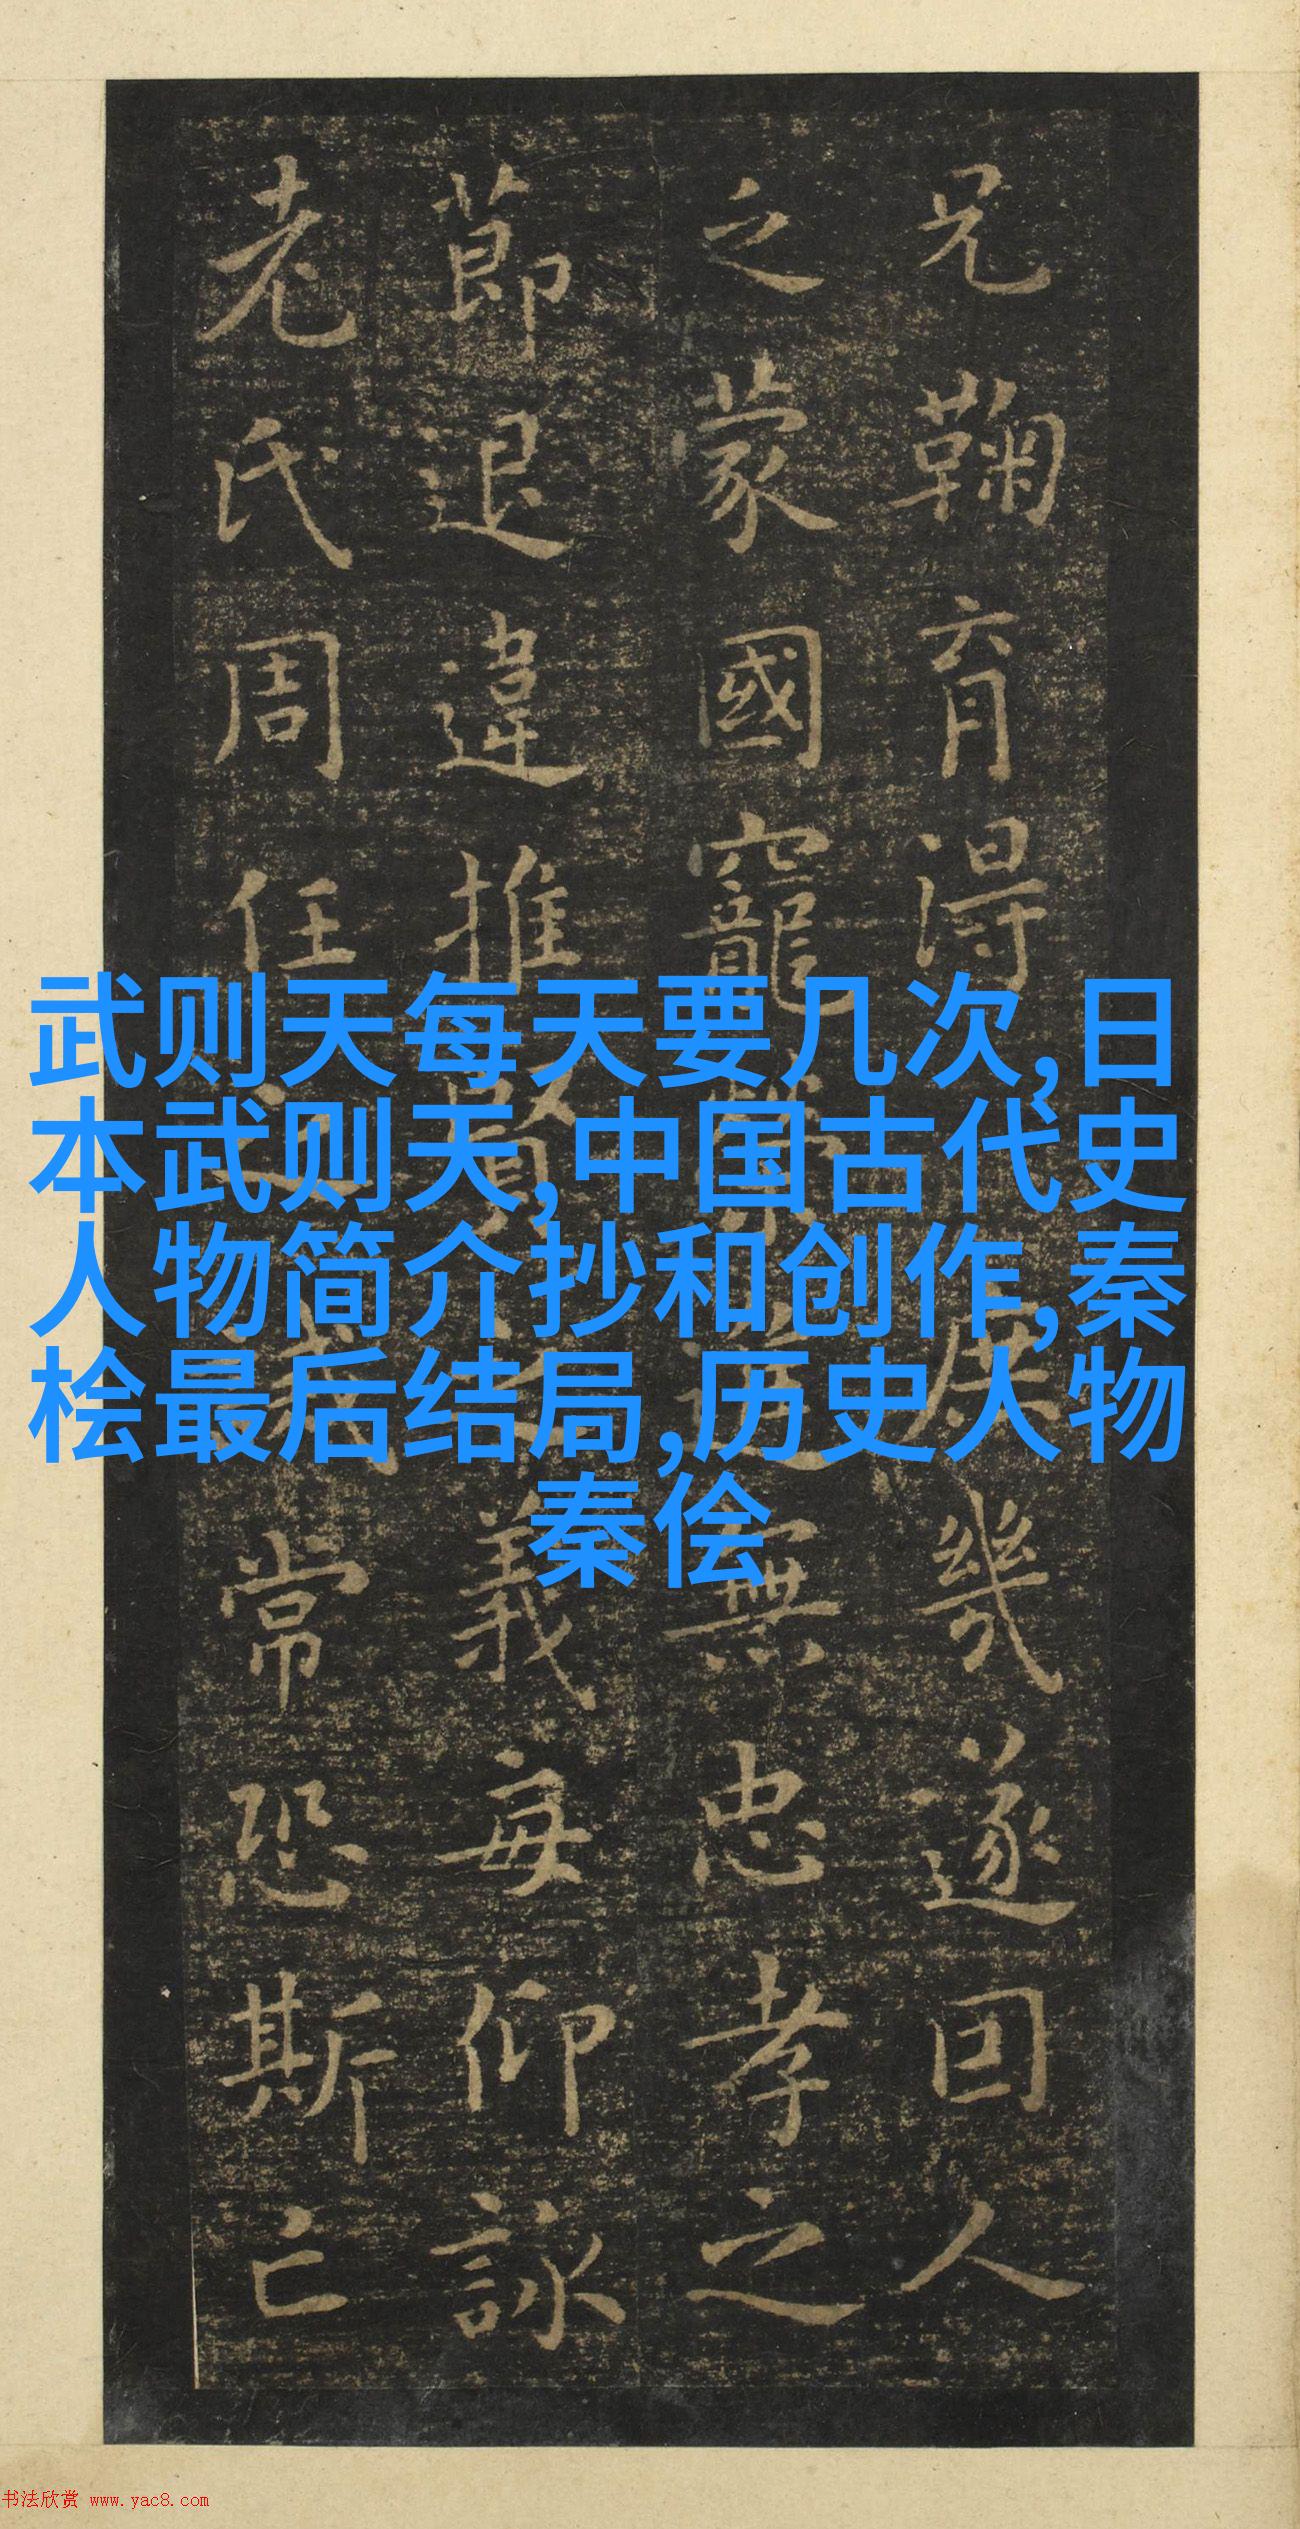 兄鞠育得庶幾遂因人
之蒙國寵榮進無忠孝之
節退違推賢義每仰詠
老氏周任之誡常恐斯亡
武则天每天要几次,日
本武则天,中国古代史
人物简介抄和创作,秦
桧最后结局,历史人物
秦侩
书法欣赏 www.yac8.com